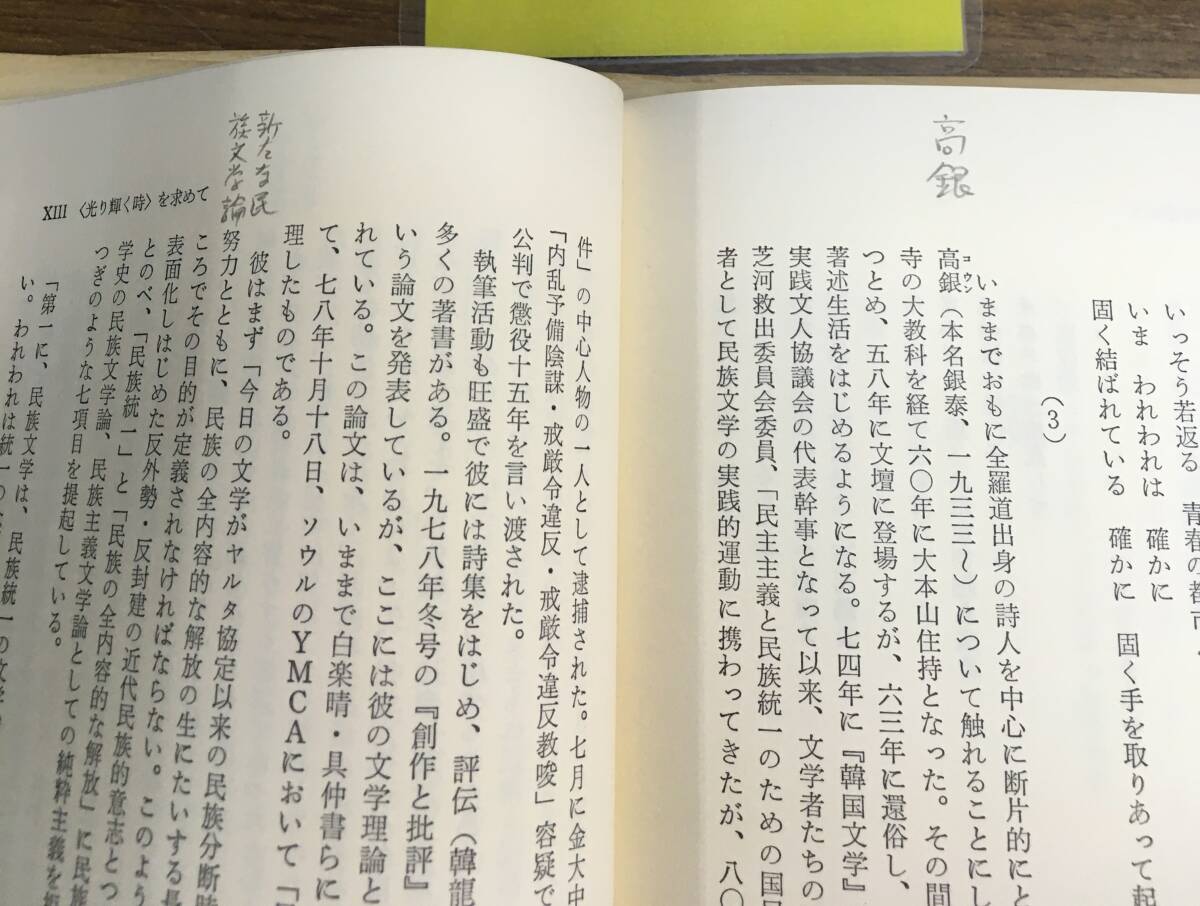 高銀
いっそう若返る 青春の都市、
いま われわれは 確かに
固く結ばれている 確かに 固く手を取りあって起
(3)
いままでおもに全羅道出身の詩人を中心に断片的にと
コウン
高銀(本名銀泰、一九三三〜)について触れることにし
寺の大教科を経て六〇年に大本山住持となった。その間
つとめ、五八年に文壇に登場するが、六三年に還俗し、
著述生活をはじめるようになる。七四年に『韓国文学』
実践文人協議会の代表幹事となって以来、文学者たちの
芝河救出委員会委員、「民主主義と民族統一のための国民
者として民族文学の実践的運動に携わってきたが、八〇
新たな民
族文学論
XIII 〈光り輝く時〉を求めて
件」の中心人物の一人として逮捕された。七月に金大中
「内乱予備陰謀・戒厳令違反・戒厳令違反教唆」容疑で
公判で懲役十五年を言い渡された。
執筆活動も旺盛で彼には詩集をはじめ、評伝(韓龍
多くの著書がある。一九七八年冬号の『創作と批評』
いう論文を発表しているが、ここには彼の文学理論と
れている。この論文は、いままで白楽晴・具仲書らに
て、七八年十月十八日、ソウルのYMCAにおいて「
理したものである。
彼はまず「今日の文学がヤルタ協定以来の民族分断時
努力とともに、民族の全内容的な解放の生にたいする長
ころでその目的が定義されなければならない。このよう
表面化しはじめた反外勢・反封建の近代民族的意志とつ
とのべ、「民族統一」と「民族の全内容的な解放」に民族
学史の民族文学論、民族主義文学論としての純粋主義を
つぎのような七項目を提起している。
「第一に、民族文学は、民族統一の文学
い。われわれは統一の